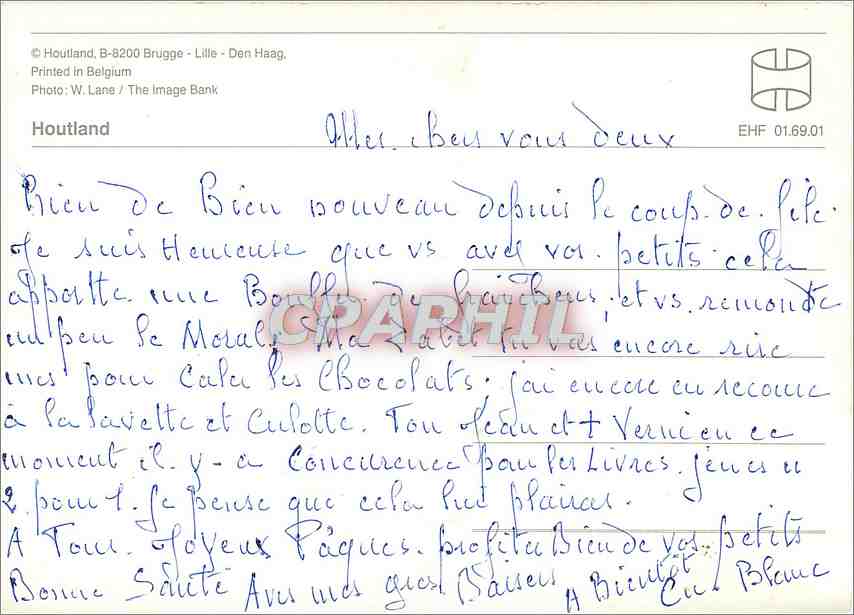 © Houtland, B-8200 Brugge - Lille - Den Haag,
Printed in Belgium
Photo: W. Lane / The Image Bank
Houtland
EHF 01.69.01
Mes chers vous deux
Rien de Bien nouveau depuis le coup. de. file.
Je suis Heureuse que vs avez vos. petits. cela
apportte une Bouffe de fraicheur, et vs. remonte
un peu le Moral. Ma tu vas encore rire
mes pour Cala les Chocolats; j'ai encore eu recours
à la lavette et Culotte. Ton Jean et + Verni en ce
moment il. y-a Concurence pour les Livres. j'en ai eu
2. pour 1. Je pense que cela lui plairas.
A Tous. Joyeux Pâques. profita Bien de vos. petits
Bonne Santé Avec mes gros Baisers A Bientôt
Blanc
CPAPHIL